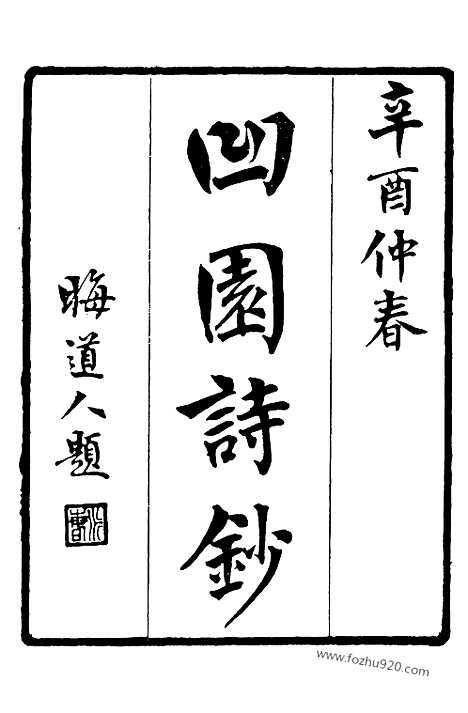 辛酉仲春
凹園詩鈔
晦道人題
www.fozhu920.com